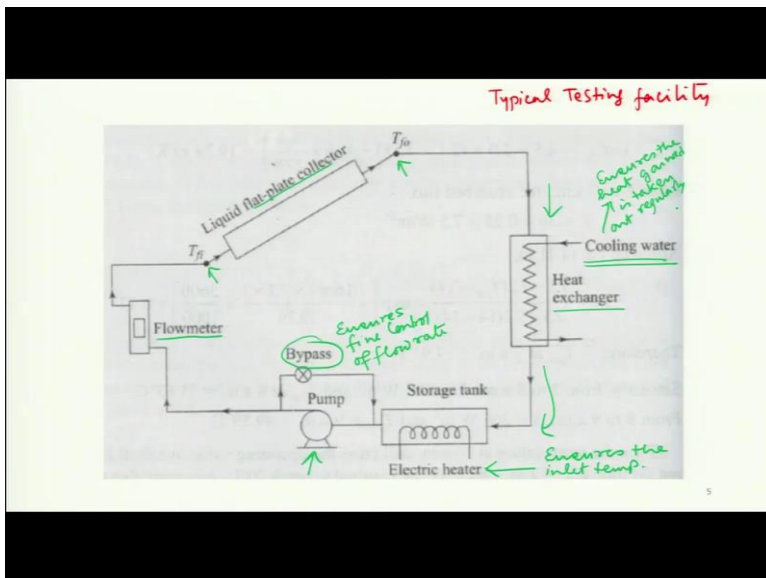 Typical Testing facility
Tfo
Liquid flat-plate collector
Tfi
Ensures the
heat gained
is taken
out regularly.
Cooling water
Heat
exchanger
Flowmeter
Ensures
fine control
of flow rate
Bypass
Pump
Storage tank
Electric heater
Ensures the
inlet temp.
5